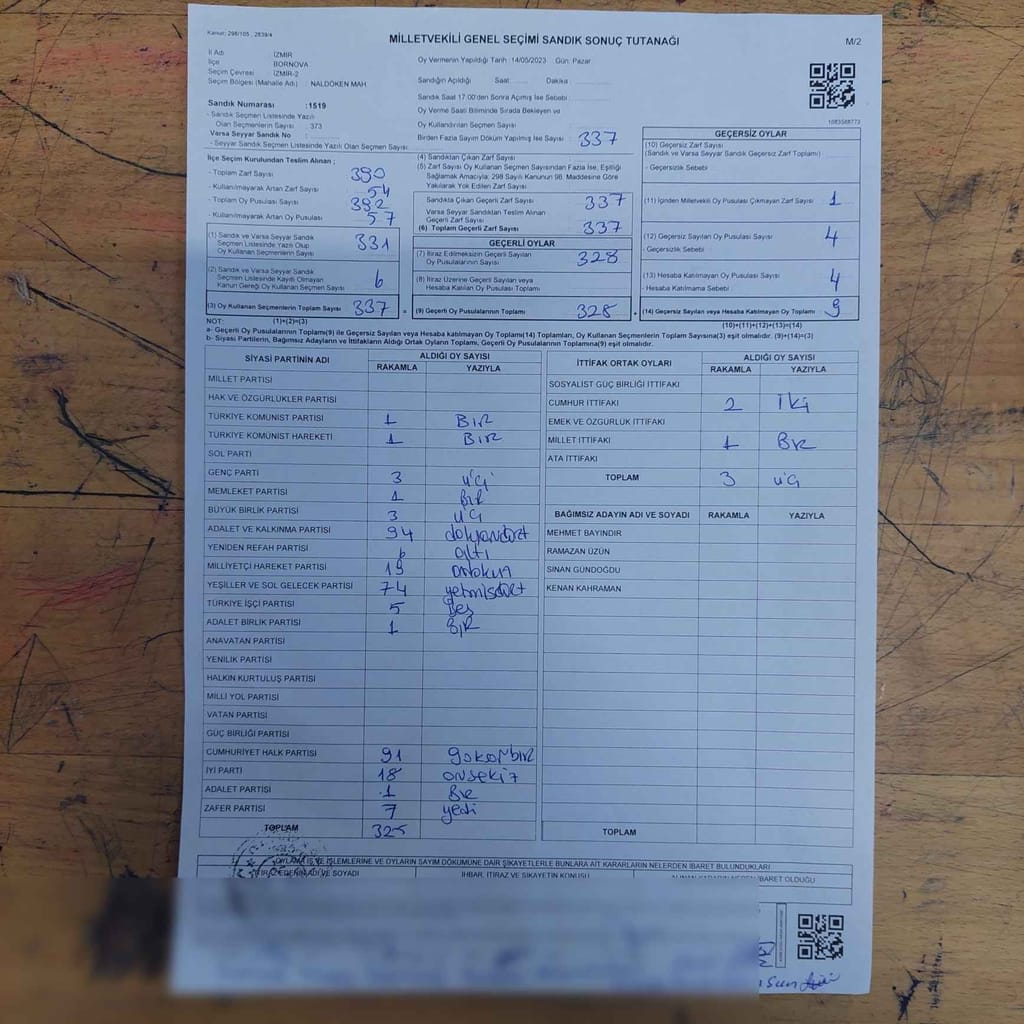 Kanun: 298/105 , 2839/4
MİLLETVEKİLİ GENEL SEÇİMİ SANDIK SONUÇ TUTANAĞI
M/2
İl Adı : İZMİR
İlçe : BORNOVA
Seçim Çevresi : İZMİR-2
Seçim Bölgesi (Mahalle Adı) : NALDÖKEN MAH
Sandık Numarası : 1519
- Sandık Seçmen Listesinde Yazılı
Olan Seçmenlerin Sayısı : 373
Varsa Seyyar Sandık No :
- Seyyar Sandık Seçmen Listesinde Yazılı Olan Seçmen Sayısı:
Oy Vermenin Yapıldığı Tarih :14/05/2023 Gün: Pazar
Sandığın Açıldığı Saat: Dakika :
Sandık Saat 17:00'den Sonra Açılmış İse Sebebi :
Oy Verme Saati Bitiminde Sırada Bekleyen ve
Oy Kullandırılan Seçmen Sayısı :
Birden Fazla Sayım Döküm Yapılmış İse Sayısı : 337
1083588773
İlçe Seçim Kurulundan Teslim Alınan ;
- Toplam Zarf Sayısı : 390
- Kullanılmayarak Artan Zarf Sayısı : 54
- Toplam Oy Pusulası Sayısı : 392
- Kullanılmayarak Artan Oy Pusulası : 57
(1) Sandık ve Varsa Seyyar Sandık
Seçmen Listesinde Yazılı Olup
Oy Kullanan Seçmenlerin Sayısı 331
(2) Sandık ve Varsa Seyyar Sandık
Seçmen Listesinde Kayıtlı Olmayan
Kanun Gereği Oy Kullanan Seçmen Sayısı 6
(3) Oy Kullanan Seçmenlerin Toplam Sayısı 337
(4) Sandıktan Çıkan Zarf Sayısı :
(5) Zarf Sayısı Oy Kullanan Seçmen Sayısından Fazla İse, Eşitliği
Sağlamak Amacıyla; 298 Sayılı Kanunun 98. Maddesine Göre
Yakılarak Yok Edilen Zarf Sayısı :
Sandıkta Çıkan Geçerli Zarf Sayısı 337
Varsa Seyyar Sandıktan Teslim Alınan
Geçerli Zarf Sayısı
(6) Toplam Geçerli Zarf Sayısı 337
GEÇERLİ OYLAR
(7) İtiraz Edilmeksizin Geçerli Sayılan
Oy Pusulalarının Sayısı 328
(8) İtiraz Üzerine Geçerli Sayılan veya
Hesaba Katılan Oy Pusulaları Toplamı
(9) Geçerli Oy Pusulaları Toplamı 328
GEÇERSİZ OYLAR
(10) Geçersiz Zarf Sayısı
(Sandık ve Varsa Seyyar Sandık Geçersiz Zarf Toplamı)
- Geçersizlik Sebebi :
(11) İçinden Milletvekili Oy Pusulası Çıkmayan Zarf Sayısı : 1
(12) Geçersiz Sayılan Oy Pusulası Sayısı 4
- Geçersizlik Sebebi :
(13) Hesaba Katılmayan Oy Pusulası Sayısı 4
- Hesaba Katılmama Sebebi :
(14) Geçersiz Sayılan veya Hesaba Katılmayan Oy Toplamı 9
NOT: (1)+(2)=(3)
(10)+(11)+(12)+(13)=(14)
a- Geçerli Oy Pusulaları Toplamı(9) ile Geçersiz Sayılan veya Hesaba katılmayan Oy Toplamı(14) Toplamları, Oy Kullanan Seçmenlerin Toplam Sayısına(3) eşit olmalıdır. (9)+(14)=(3)
b- Siyasi Partilerin, Bağımsız Adayların ve İttifakların Aldığı Ortak Oyların Toplamı, Geçerli Oy Pusulalarının Toplamına(9) eşit olmalıdır.
SİYASİ PARTİNİN ADI ALDIĞI OY SAYISI
RAKAMLA YAZIYLA
MİLLET PARTİSİ
HAK VE ÖZGÜRLÜKLER PARTİSİ
TÜRKİYE KOMÜNİST PARTİSİ 1 BİR
TÜRKİYE KOMÜNİST HAREKETİ 1 BİR
SOL PARTİ
GENÇ PARTİ 3 üç
MEMLEKET PARTİSİ 1 BİR
BÜYÜK BİRLİK PARTİSİ 3 üç
ADALET VE KALKINMA PARTİSİ 94 doksandört
YENİDEN REFAH PARTİSİ 6 altı
MİLLİYETÇİ HAREKET PARTİSİ 19 ondokuz
YEŞİLLER VE SOL GELECEK PARTİSİ 74 yetmişdört
TÜRKİYE İŞÇİ PARTİSİ 5 Beş
ADALET BİRLİK PARTİSİ 1 BİR
ANAVATAN PARTİSİ
YENİLİK PARTİSİ
HALKIN KURTULUŞ PARTİSİ
MİLLİ YOL PARTİSİ
VATAN PARTİSİ
GÜÇ BİRLİĞİ PARTİSİ
CUMHURİYET HALK PARTİSİ 91 Doksanbir
İYİ PARTİ 18 onsekiz
ADALET PARTİSİ 1 Bir
ZAFER PARTİSİ 7 yedi
TOPLAM 325
İTTİFAK ORTAK OYLARI ALDIĞI OY SAYISI
RAKAMLA YAZIYLA
SOSYALİST GÜÇ BİRLİĞİ İTTİFAKI
CUMHUR İTTİFAKI 2 İki
EMEK VE ÖZGÜRLÜK İTTİFAKI
MİLLET İTTİFAKI 1 Bir
ATA İTTİFAKI
TOPLAM 3 üç
BAĞIMSIZ ADAYIN ADI VE SOYADI RAKAMLA YAZIYLA
MEHMET BAYINDIR
RAMAZAN ÜZÜN
SİNAN GÜNDOĞDU
KENAN KAHRAMAN
TOPLAM
OYLAMA İŞ VE İŞLEMLERİNE VE OYLARIN SAYIM DÖKÜMÜNE DAİR ŞİKAYETLERLE BUNLARA AİT KARARLARIN NELERDEN İBARET BULUNDUKLARI
İTİRAZ EDENİN ADI VE SOYADI İHBAR, İTİRAZ VE ŞİKAYETİN KONUSU ALINAN KARARIN NEDEN İBARET OLDUĞU